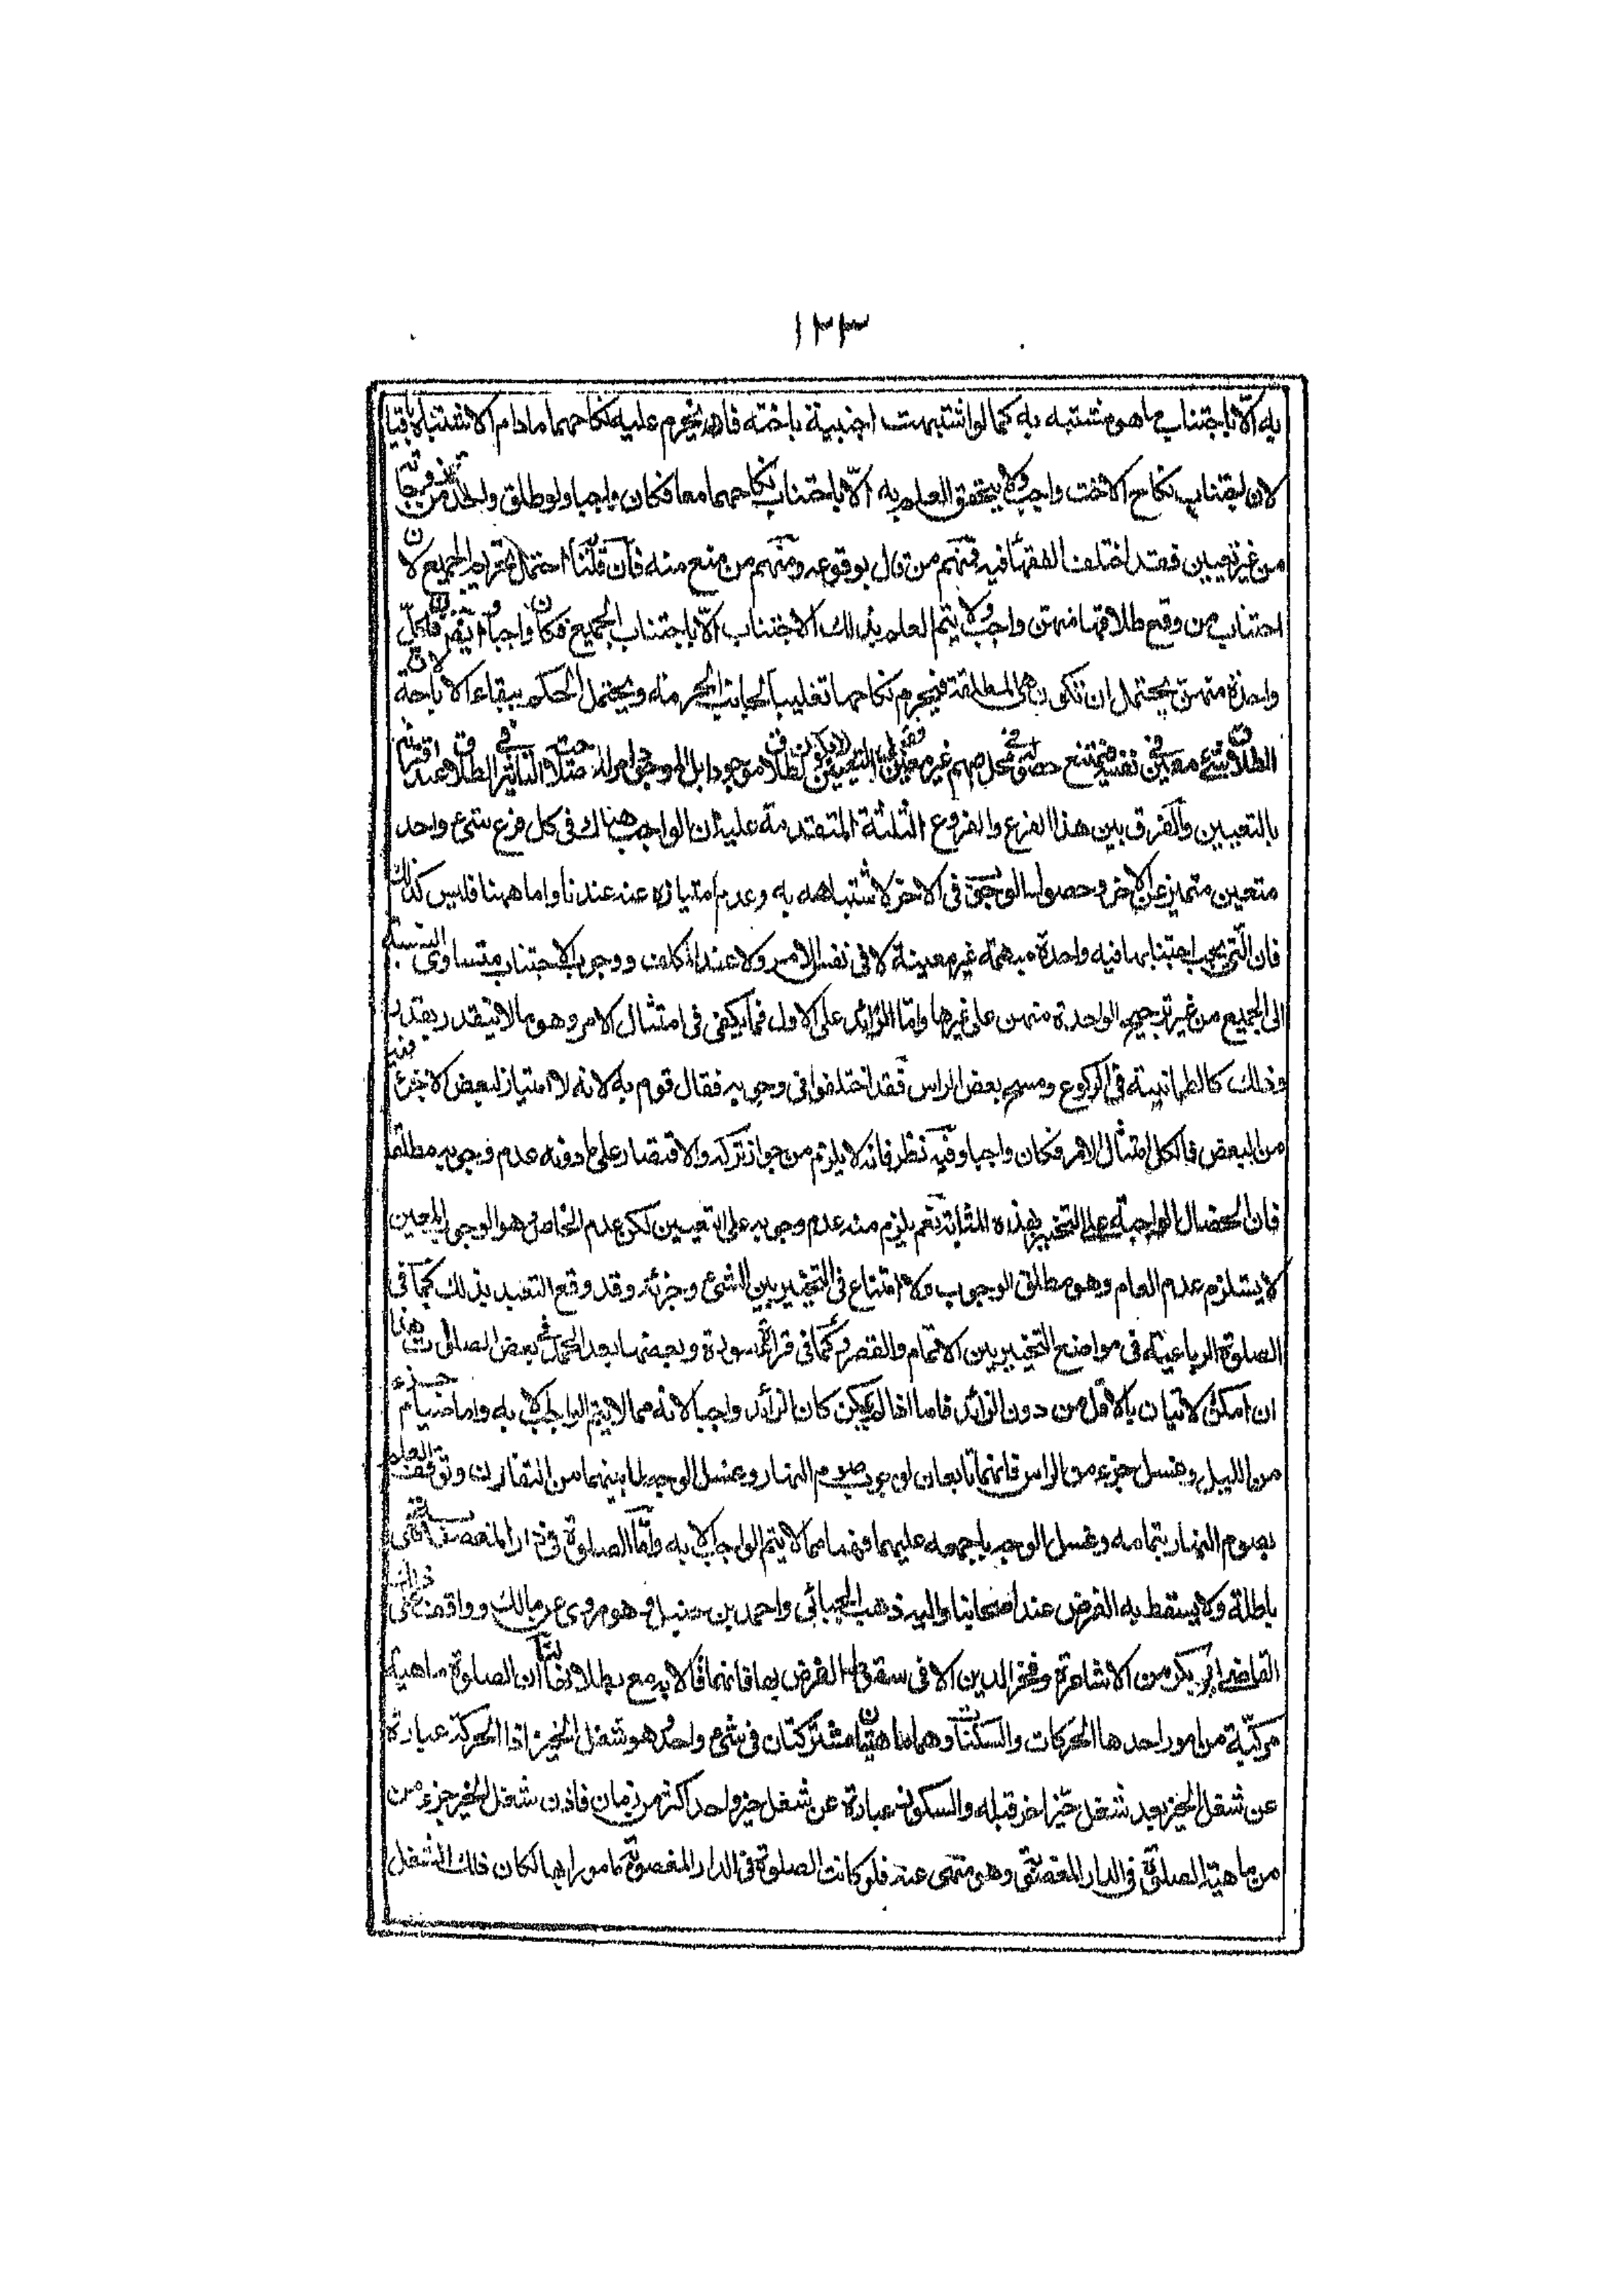 ١٢٣
به الّا باجتناب ما هو مشتبه به كما لو اشتبهت اجنبية باخته فانه يحرم عليه نكاحهما ما دام الاشتباه باقيا
لان اجتناب نكاح الاخت واجب ولا يتحقق العلم به الّا باجتناب نكاحهما معا فكان واجبا ولو طلق واحدة من زوجاته
من غير تعيين فقد اختلف الفقهاء فيه فمنهم من قال بوقوعه ومنهم من منع منه فان قلنا احتمل تحريم الجميع لان
اجتناب من وقع طلاقها منهن واجب ولا يتم العلم بذلك الاجتناب الّا باجتناب الجميع فكان واجبا وايضا فكل
واحدة منهن يحتمل ان تكون هى المطلقة فيحرم نكاحها تغليبا لجانب الحرمة ويحتمل الحكم ببقاء الاباحة لان
الطلاق شئ معين فى نفسه فيمتنع حصوله فى محل مبهم غير معين التعيين الطلاق موجودا بل الموجود امر له التاثير فى الطلاق عند
بالتعيين والفرق بين هذا الفرع والفروع الثلثة المتقدمة عليه ان الواجب هناك فى كل فرع شئ واحد
متعين متميز عن الاخر وحصول الوجوب فى الاخر لاشتباهه به وعدم امتيازه عنه عندنا واما ههنا فليس كذلك
فان الّتى يجب اجتنابها فيه واحدة مبهمة غير معينة لا فى نفس الامر ولا عند المكلف ووجوب الاجتناب متساوى النسبة
الى الجميع من غير ترجيح الواحدة منهن على غيرها وامّا الزائد على الاول فما يكفى فى امتثال الامر وهو مما لا يتقدر بقدر
وذلك كالطمانينة فى الركوع ومسح بعض الراس فقد اختلفوا فى وجوبه فقال قوم به لانه لا امتياز لبعض الاجزاء فيه
من البعض فالكل امتثال الامر فكان واجبا وفيه نظر فانه لا يلزم من جواز تركه والاقتصار على ما دونه عدم وجوبه مطلقا
فان الخصال الواجبة على التخيير بهذه المثابة نعم يلزم منه عدم وجوبه على التعيين لكن عدم الخاص هو الوجوب المعين
لا يستلزم عدم العام وهو مطلق الوجوب ولا امتناع فى التخيير بين الشئ وجزئه وقد وقع التعبد بذلك كما فى
الصلوة الرباعية فى مواضع التخيير بين الاتمام والقصر وكما فى قرائة سورة وبعضها بعد الحمد فى بعض الصلوات هذا
ان امكن الاتيان بالاقل من دون الزائد فاما اذا لم يمكن كان الزائد واجبا لانه مما لا يتم الواجب الا به واما صيام جزء
من الليل وغسل جزء من الراس فانهما تابعان لوجوب صوم النهار وغسل الوجه لما بينهما من التقارن وتوقف العلم
بصوم النهار بتمامه وغسل الوجه باجمعه عليهما فهما مما لا يتم الواجب الا به وامّا الصلوة فى الدار المغصوبة فهى
باطلة ولا يسقط به الفرض عند اصحابنا واليه ذهب الجبائى واحمد بن حنبل وهو مروى عن مالك ووافقنا على ذلك
القاضى ابو بكر من الاشاعرة وفخر الدين الا فى سقوط الفرض بها فانهما قالا به مع بطلانها لنا ان الصلوة ماهية
مركبة من امور احدها الحركات والسكنات وهما ماهيتان مشتركتان فى شئ واحد هو شغل الحيز اذا الحركة عبارة
عن شغل الحيز بعد شغل حيز اخر قبله والسكون عبارة عن شغل حيز واحد اكثر من زمان فاذن شغل الحيز جزء من
من ماهية الصلوة فى الدار المغصوبة وهو منهى عنه فلو كانت الصلوة فى الدار المغصوبة مامورا بها لكان ذلك الشغل